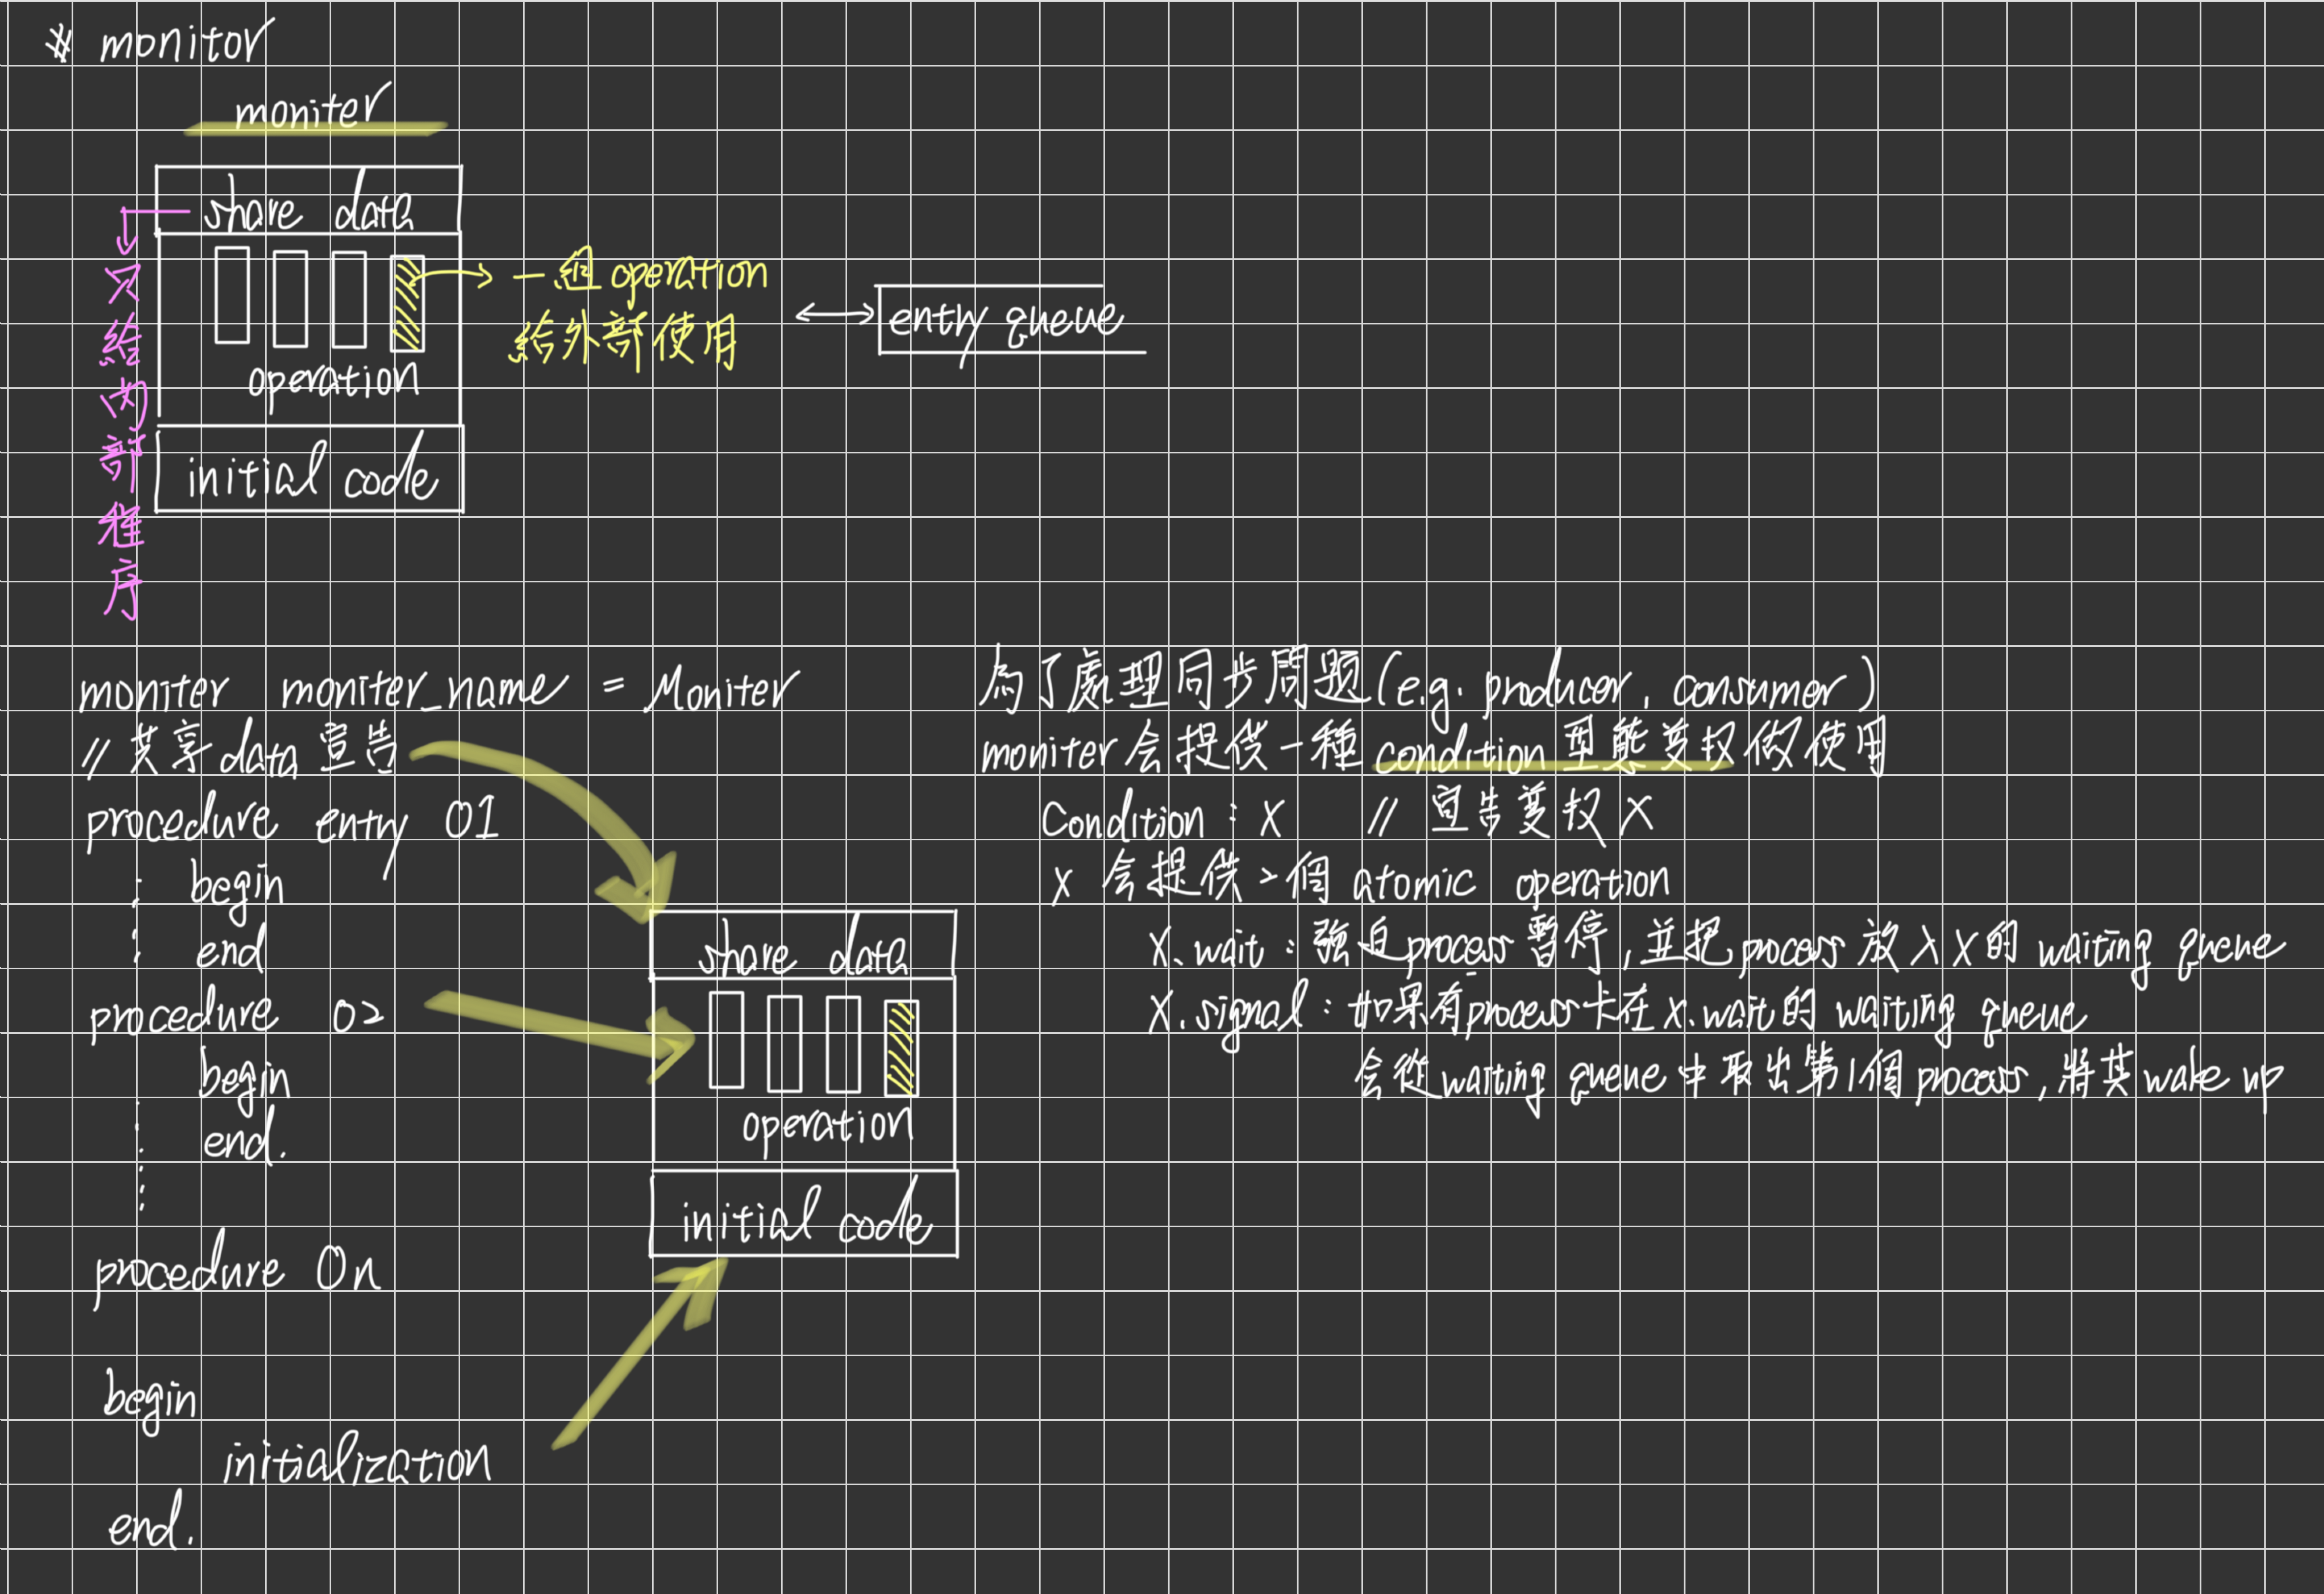 ※ monitor
moniter
share data
只給內部程序
一組 operation
給外部使用
entry queue
operation
initial code
moniter moniter_name = Moniter
// 共享 data 宣告
procedure entry 01
begin
end
procedure 02
begin
end.
procedure 0n
begin
initialization
end.
share data
operation
initial code
為了處理同步問題(e.g. producer, consumer)
moniter 会提供一種 condition 型態变数做使用
Condition : X // 宣告变数 X
X 会提供2個 atomic operation
X.wait : 強迫process暫停,並把process放入X的 waiting queue
X.signal : 如果有process卡在X.wait的 waiting queue
会從waiting queue中取出第1個process,將其wake up